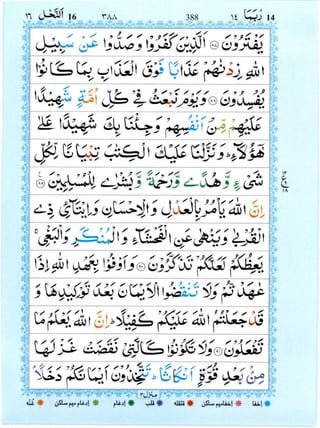 ١٦ اَلنَّحْل 16 ٣٨٨ 388 رُبَمَا ١٤ 14
يَفْتَرُوْنَ ﴿٨٧﴾ اَلَّذِيْنَ كَفَرُوْا وَصَدُّوْا عَنْ سَبِيْلِ
اللّٰهِ زِدْنٰهُمْ عَذَابًا فَوْقَ الْعَذَابِ بِمَا كَانُوْا
يُفْسِدُوْنَ ﴿٨٨﴾ وَيَوْمَ نَبْعَثُ فِيْ كُلِّ اُمَّةٍ شَهِيْدًا
عَلَيْهِمْ مِّنْ اَنْفُسِهِمْ وَجِئْنَا بِكَ شَهِيْدًا عَلٰى
هٰٓؤُلَآءِ ؕ وَنَزَّلْنَا عَلَيْكَ الْكِتٰبَ تِبْيَانًا لِّكُلِّ
شَيْءٍ وَّهُدًى وَّرَحْمَةً وَّبُشْرٰى لِلْمُسْلِمِيْنَ ﴿٨٩﴾
اِنَّ اللّٰهَ يَاْمُرُ بِالْعَدْلِ وَالْاِحْسَانِ وَاِيْتَآئِ ذِي
الْقُرْبٰى وَيَنْهٰى عَنِ الْفَحْشَآءِ وَالْمُنْكَرِ وَالْبَغْيِ ۚ
يَعِظُكُمْ لَعَلَّكُمْ تَذَكَّرُوْنَ ﴿٩٠﴾ وَاَوْفُوْا بِعَهْدِ اللّٰهِ اِذَا
عٰهَدْتُّمْ وَلَا تَنْقُضُوا الْاَيْمَانَ بَعْدَ تَوْكِيْدِهَا وَ
قَدْ جَعَلْتُمُ اللّٰهَ عَلَيْكُمْ كَفِيْلًا ؕ اِنَّ اللّٰهَ يَعْلَمُ مَا
تَفْعَلُوْنَ ﴿٩١﴾ وَلَا تَكُوْنُوْا كَالَّتِيْ نَقَضَتْ غَزْلَهَا
مِنْۢ بَعْدِ قُوَّةٍ اَنْكَاثًا ؕ تَتَّخِذُوْنَ اَيْمَانَكُمْ دَخَلًۢا
منزل ٣
اخفا اخفا میم ساکن قلقلہ قلب ادغام ادغام میم ساکن غنّہ